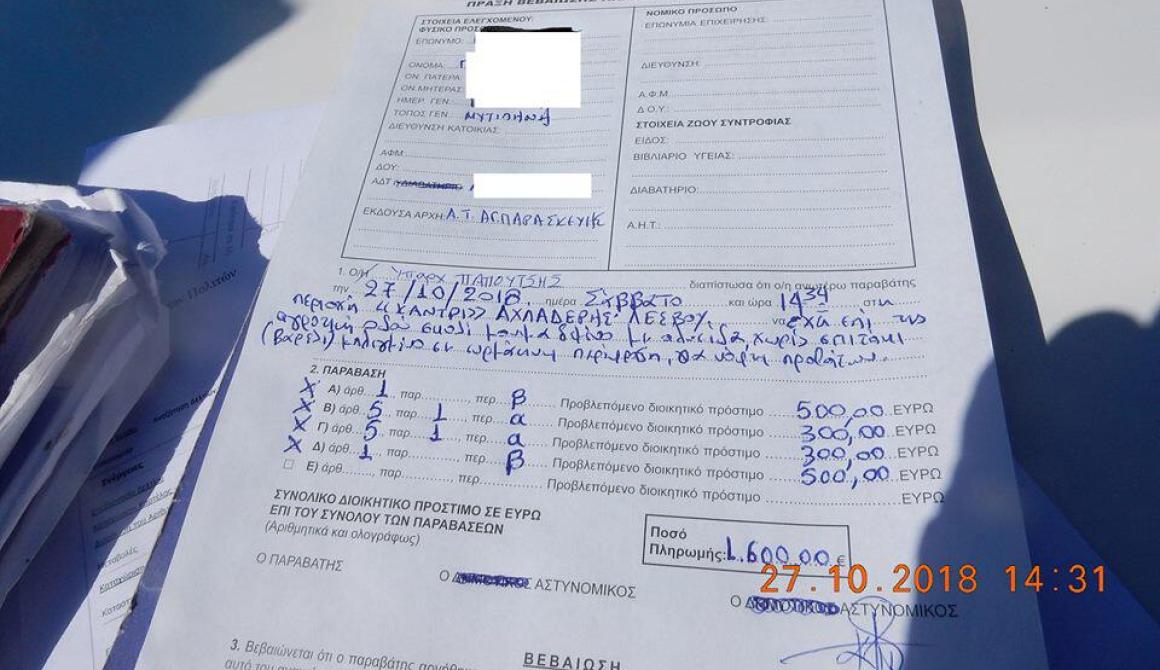 ΠΡΑΞΗ ΒΕΒΑΙΩΣΗΣ
ΣΤΟΙΧΕΙΑ ΕΛΕΓΧΟΜΕΝΟΥ:
ΦΥΣΙΚΟ ΠΡΟΣΩΠΟ
ΕΠΩΝΥΜΟ:
ΟΝΟΜΑ:
ΟΝ. ΠΑΤΕΡΑ:
ΟΝ. ΜΗΤΕΡΑΣ
ΗΜΕΡ. ΓΕΝ.
ΤΟΠΟΣ ΓΕΝ: ΜΥΤΙΛΗΝΗ
ΔΙΕΥΘΥΝΣΗ ΚΑΤΟΙΚΙΑΣ:
ΑΦΜ
ΔΟΥ:
ΑΔΤ
ΕΚΔΟΥΣΑ ΑΡΧΗ: Α.Τ. ΑΓ. ΠΑΡΑΣΚΕΥΗΣ
ΝΟΜΙΚΟ ΠΡΟΣΩΠΟ
ΕΠΩΝΥΜΙΑ ΕΠΙΧΕΙΡΗΣΗΣ:
ΔΙΕΥΘΥΝΣΗ:
Α.Φ.Μ
Δ.Ο.Υ.:
ΣΤΟΙΧΕΙΑ ΖΩΟΥ ΣΥΝΤΡΟΦΙΑΣ
ΕΙΔΟΣ:
ΒΙΒΛΙΑΡΙΟ ΥΓΕΙΑΣ:
ΔΙΑΒΑΤΗΡΙΟ:
Α.Η.Τ.:
1. Ο/Η Υπαρχ ΠΑΠΟΥΤΣΗΣ διαπίστωσα ότι ο/η ανωτέρω παραβάτης
την 27/10/2018 ημέρα ΣΑΒΒΑΤΟ και ώρα 1434 στη
περιοχή «ΧΑΝΤΡΙ» ΑΧΛΑΔΕΡΗΣ ΛΕΣΒΟΥ, να έχει επί της
σκυλί με αλυσίδα, χωρίς σπιτάκι
(βαρέλι) προβάτων.
2. ΠΑΡΑΒΑΣΗ
X Α) άρθ. 1, παρ. , περ. β Προβλεπόμενο διοικητικό πρόστιμο 500,00 ΕΥΡΩ
X Β) άρθ. 5 παρ. 1, περ. α Προβλεπόμενο διοικητικό πρόστιμο 300,00 ΕΥΡΩ
X Γ) άρθ. 5 παρ. 1, περ. α Προβλεπόμενο διοικητικό πρόστιμο 300,00 ΕΥΡΩ
X Δ) άρθ. 1, παρ. , περ. β Προβλεπόμενο διοικητικό πρόστιμο 500,00 ΕΥΡΩ
Ε) άρθ. , παρ. , περ. Προβλεπόμενο διοικητικό πρόστιμο ΕΥΡΩ
ΣΥΝΟΛΙΚΟ ΔΙΟΙΚΗΤΙΚΟ ΠΡΟΣΤΙΜΟ ΣΕ ΕΥΡΩ
ΕΠΙ ΤΟΥ ΣΥΝΟΛΟΥ ΤΩΝ ΠΑΡΑΒΑΣΕΩΝ
(Αριθμητικά και ολογράφως)
Ποσό
Πληρωμής: 1.600,00 €
Ο ΠΑΡΑΒΑΤΗΣ
Ο ΑΣΤΥΝΟΜΙΚΟΣ
Ο ΑΣΤΥΝΟΜΙΚΟΣ
27.10.2018 14:31
ΒΕΒΑΙΩΣΗ
3. Βεβαιώνεται ότι ο παραβάτης